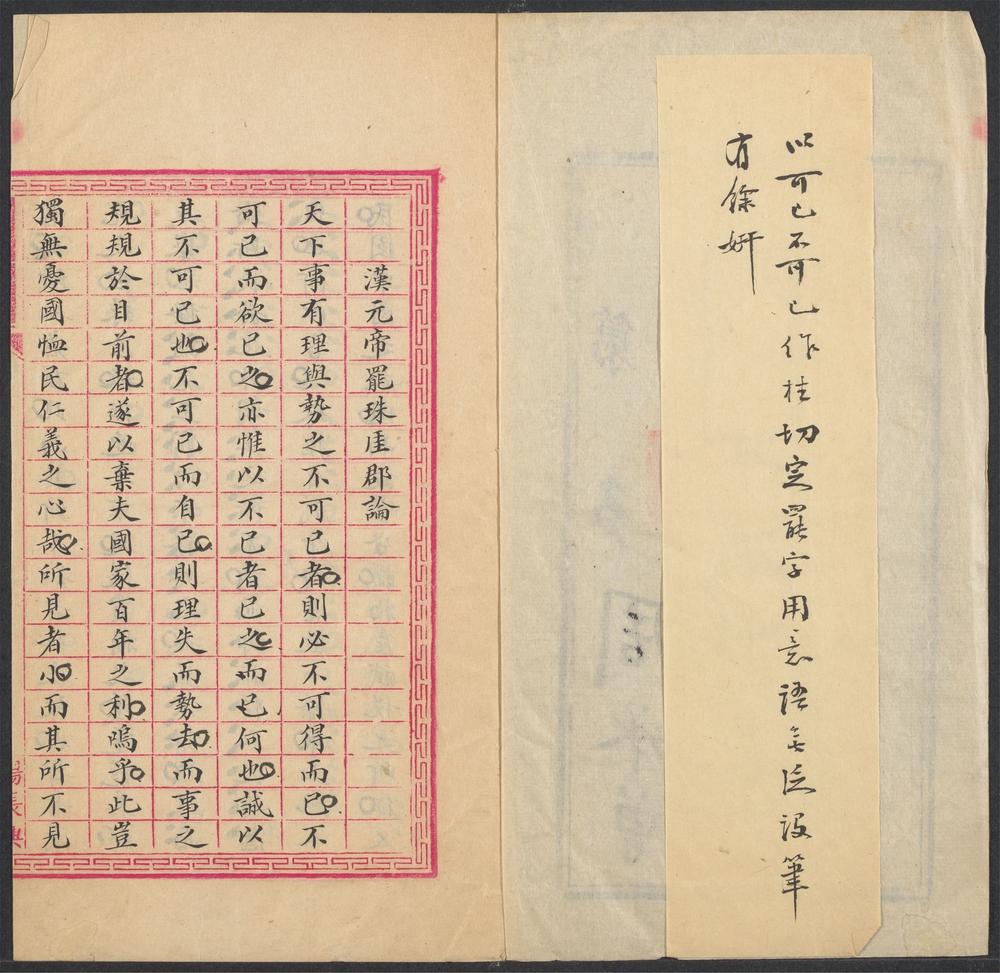 以可已不可已作柱切定罷字用意語無泛設筆
有餘妍
漢元帝罷珠厓郡論
天下事有理與勢之不可已者則必不可得而已不
可已而欲已之亦惟以不已者已之而已何也誠以
其不可已也不可已而自已則理失而勢去而事之
規規於目前者遂以棄夫國家百年之利嗚乎此豈
獨無憂國恤民仁義之心哉所見者小而其所不見